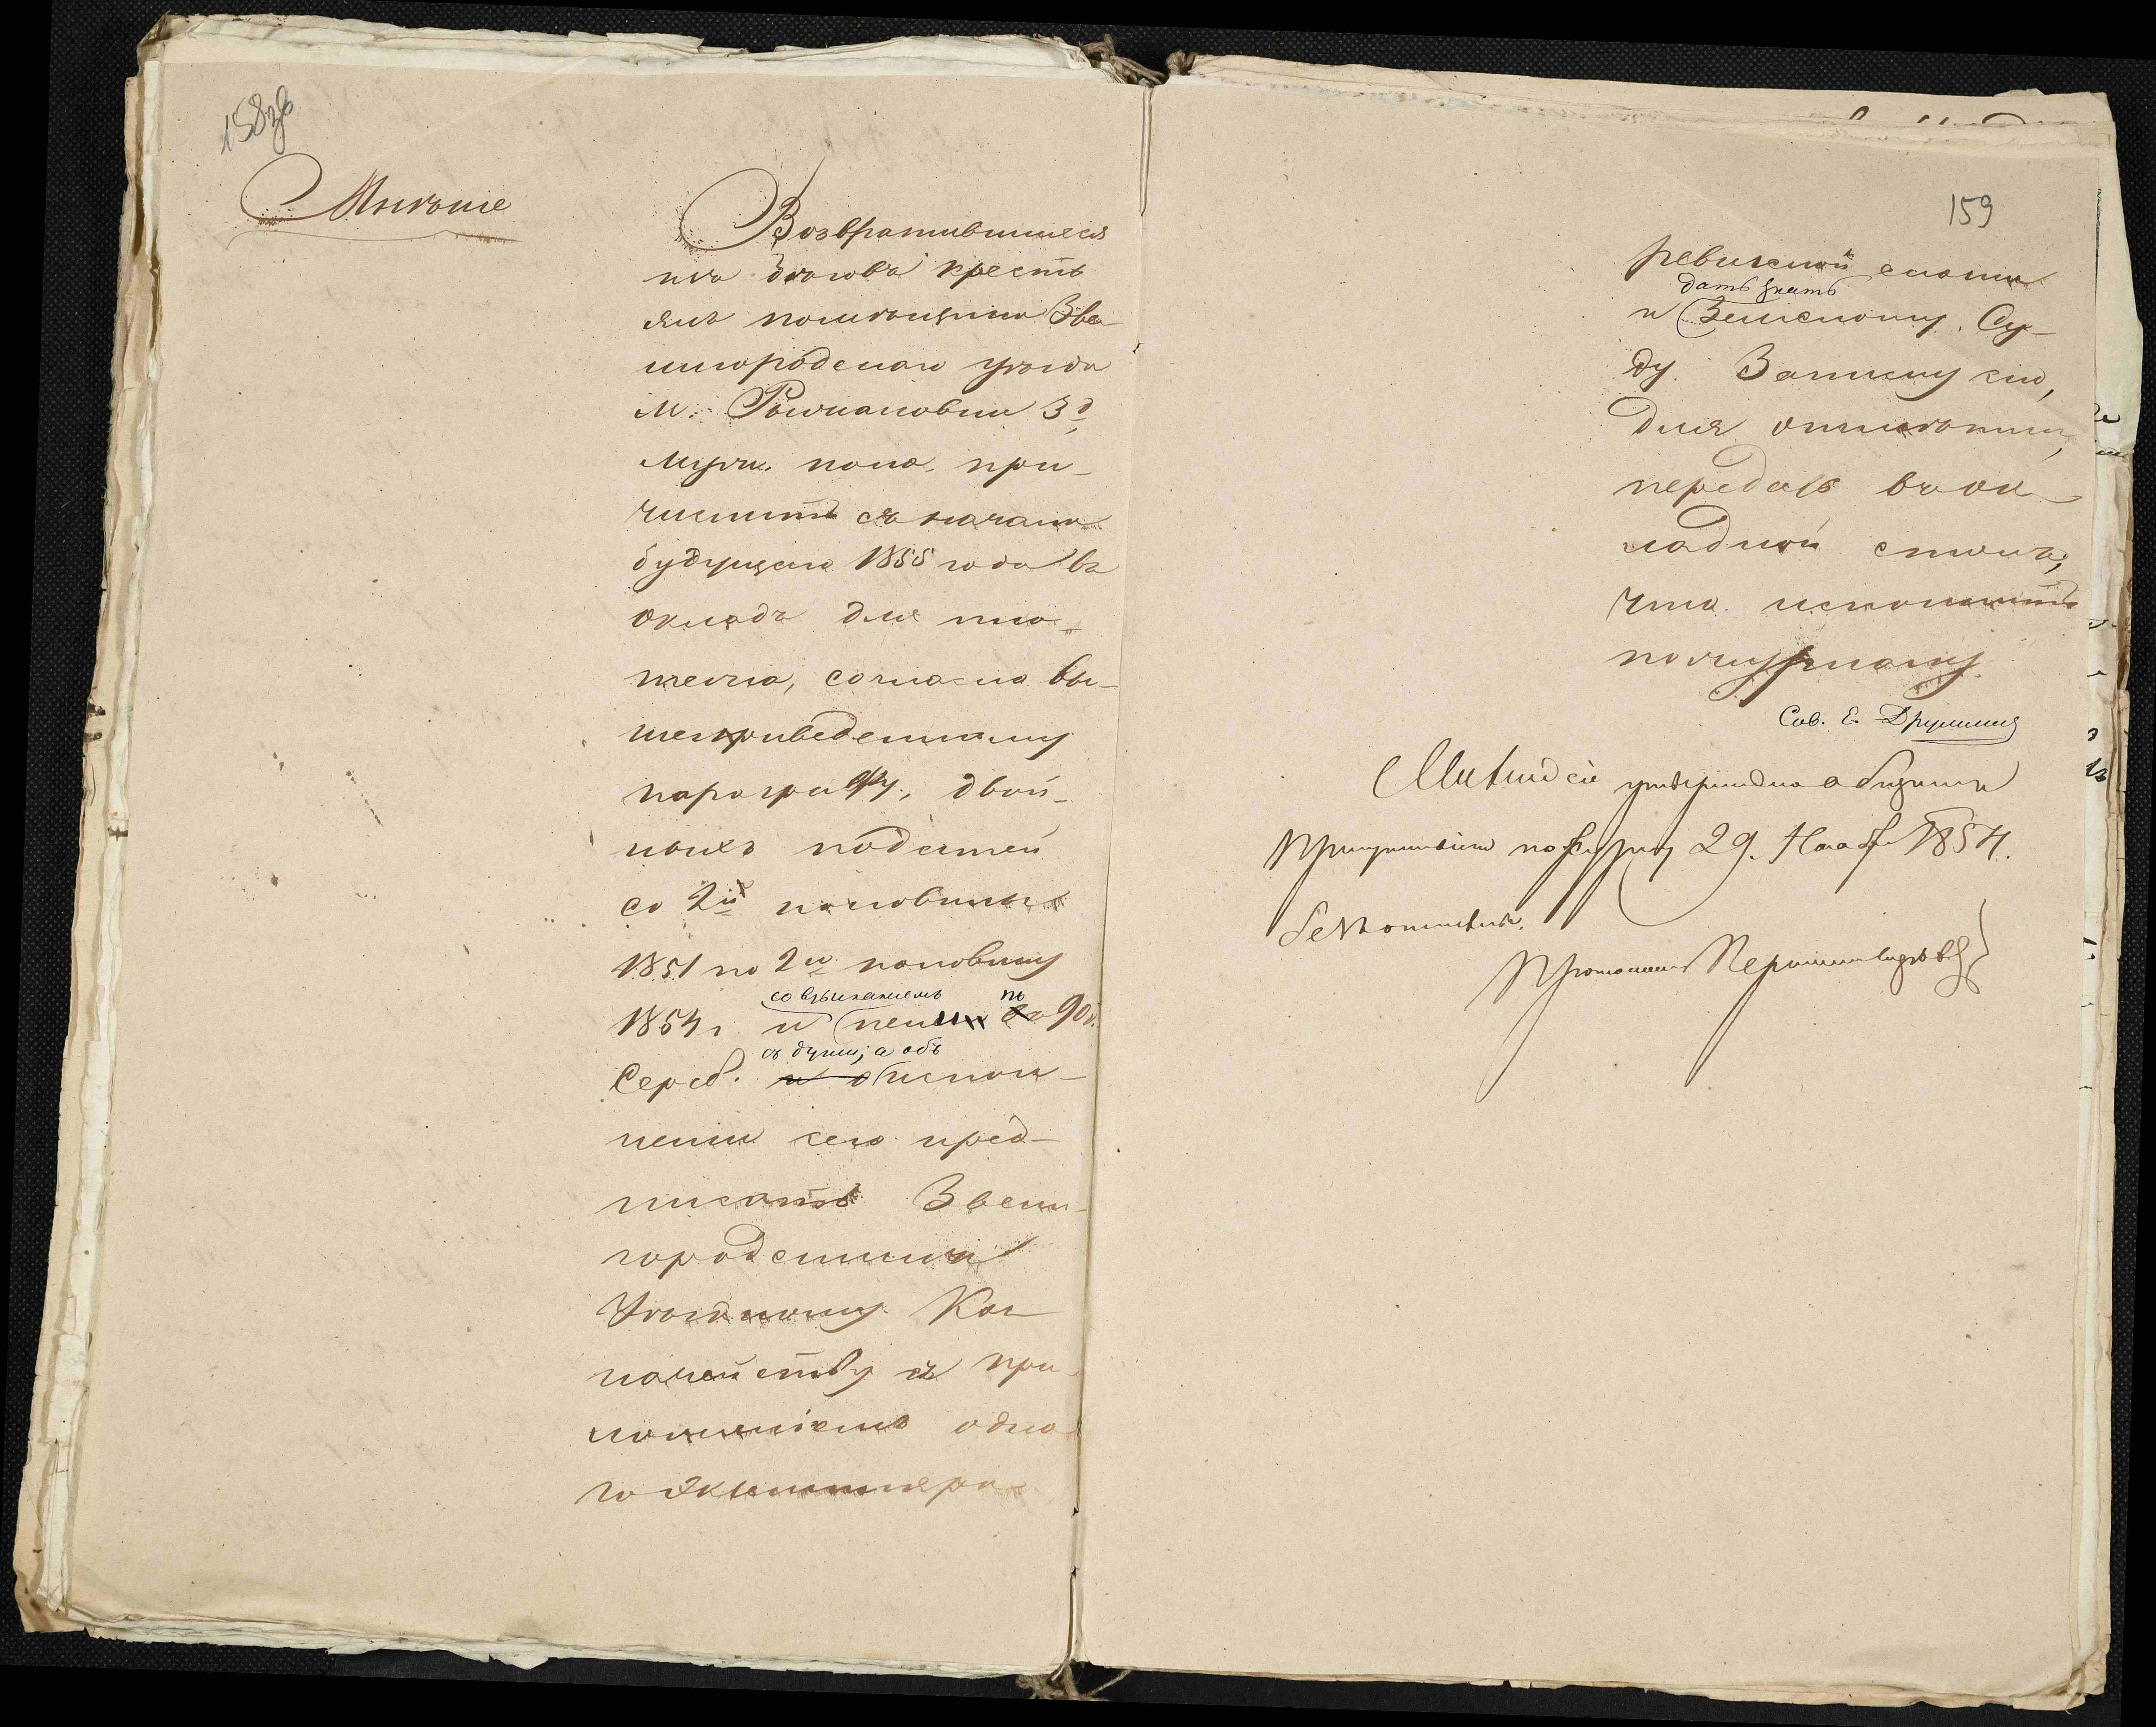 158 об
Мнѣніе
Возвратившихся
изъ бѣговъ кресть
янъ помѣщика Зве-
нигородскаго уѣзда
М. Росчаковки 3 д
муж. пола, при-
числить съ начала
будущаго 1855 года въ
окладъ для пла-
тежа, согласно вы-
шеприведенному
параграфу, двой-
ныхъ податей
со 2й половины
1851 по 2ю половину
со взысканіемъ по
1854 г. и пени 90 к.
съ души; а объ
Сереб. и о испол-
неніи сего пред-
писать Звени-
городскому
Уѣздному Каз-
начейству съ при-
ложеніемъ одно
го экземпляра
159
ревизской сказки
дать знать
и Земскому Су-
ду. Записку сію,
для отмѣтки,
передать въ ок-
ладной столъ,
что исполнить
по журналу.
Сов. Е.
Мнѣніе сіе утверждено общимъ
присутствіемъ по журналу 29. Нояб. 1854.